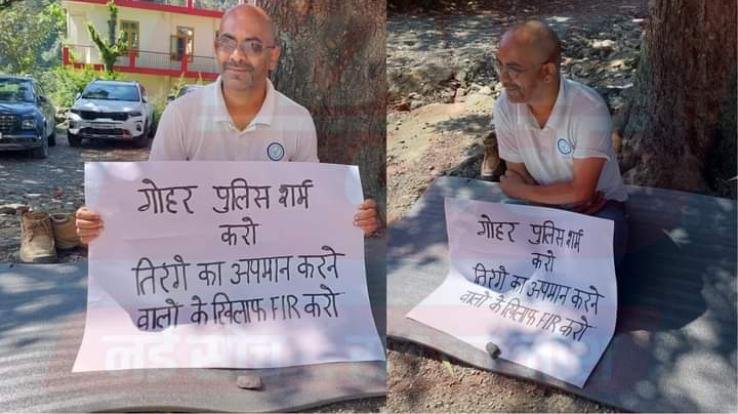 गोहर पुलिस शर्म
करो
तिरंगे का अपमान करने
वालो के खिलाफ FIR करो
गोहर पुलिस शर्म
करो
तिरंगे का अपमान करने
वालो के खिलाफ FIR करो